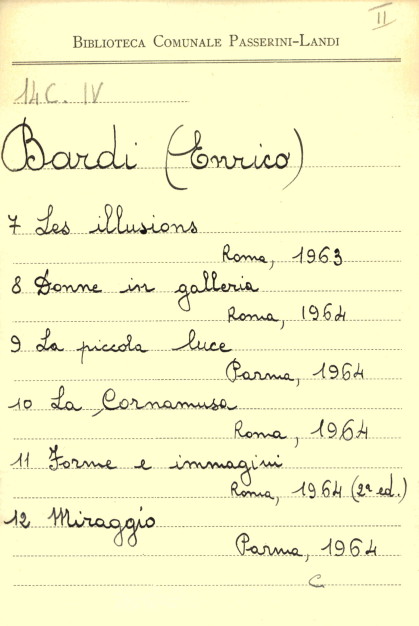 II
BIBLIOTECA COMUNALE PASSERINI-LANDI
14C. IV
Bardi (Enrico)
7 Les illusions
Roma, 1963
8 Donne in galleria
Roma, 1964
9 La piccola luce
Parma, 1964
10 La Cornamusa
Roma, 1964
11 Forme e immagini
Roma, 1964 (2ª ed.)
12 Miraggio
Parma, 1964
C